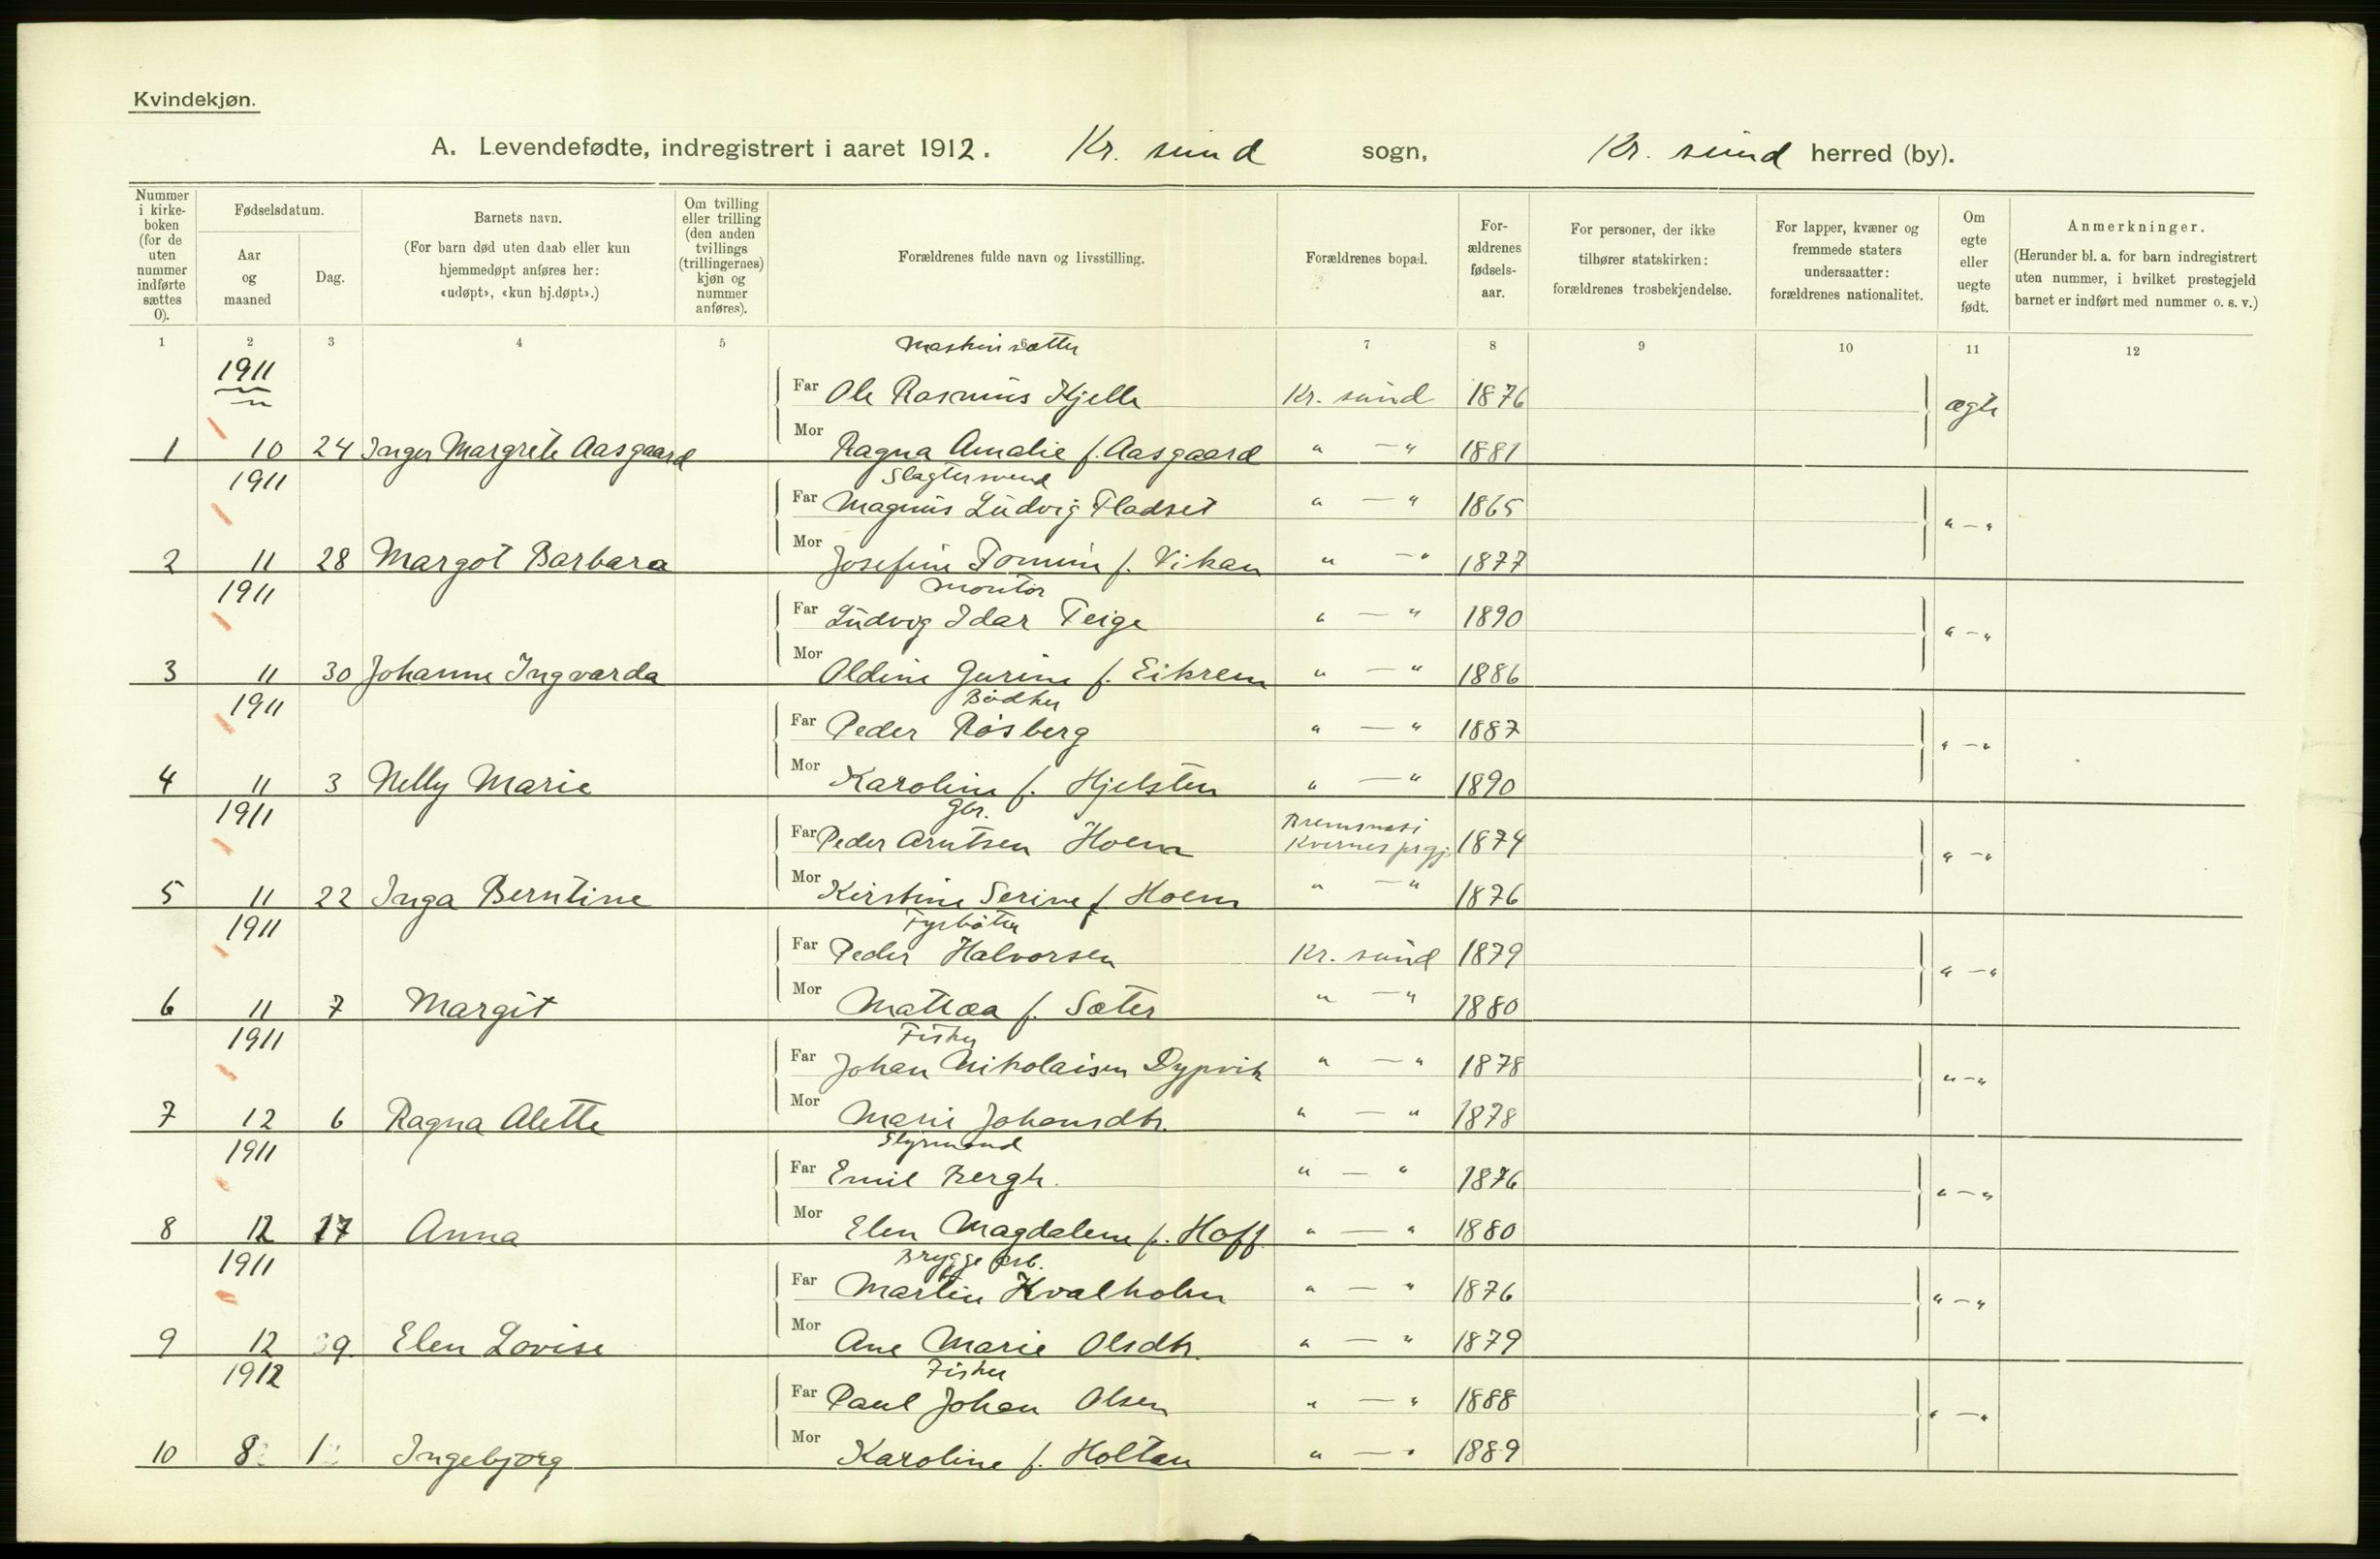 Kvindekjøn.
A. Levendefødte, indregistrert i aaret 1912. Kr. sund sogn, Kr. sund herred (by).
Nummer i kirkeboken (for de uten nummer indførte sættes 0).
Fødselsdatum.
Aar og maaned
Dag.
Barnets navn.
(For barn død uten daab eller kun hjemmedøpt anføres her: «udøpt», «kun hj.døpt».)
Om tvilling eller trilling (den anden tvillings (trillingernes) kjøn og nummer anføres).
Forældrenes fulde navn og livsstilling.
Forældrenes bopæl.
Forældrenes fødselsaar.
For personer, der ikke tilhører statskirken: forældrenes trosbekjendelse.
For lapper, kvæner og fremmede staters undersaatter: forældrenes nationalitet.
Om egte eller uegte født.
Anmerkninger.
(Herunder bl. a. for barn indregistrert uten nummer, i hvilket prestegjeld barnet er indført med nummer o. s. v.)
1 2 3 4 5 6 7 8 9 10 11 12
Maskinsætter
1911 Far Ole Rasmus Kjelle Kr. sund 1876 ægte
1 10 24 Inger Margrete Aasgaard Mor Ragna Amalie f. Aasgaard " — " 1881
1911 Slagtersvend
Far Magnus Ludvig Fladset " — " 1865 " — "
2 11 28 Margot Barbara Mor Josefine Tomine f. Vikan " — " 1877
1911 Montør
Far Ludvig Idar Teige " — " 1890 " — "
3 11 30 Johanne Ingvarda Mor Oldine Gurine f. Eikrem " — " 1886
1911 Bødker
Far Peder Røsberg " — " 1887 " — "
4 11 3 Nelly Marie Mor Karoline f. Hjelsten " — " 1890
1911 Gbr.
Far Peder Arntsen Hoem Bremsnes i Kvernes prgj. 1874 " — "
5 11 22 Inga Berntine Mor Kirstine Serine f. Hoem " — " 1876
1911 Fyrbøter
Far Peder Halvorsen Kr. sund 1879 " — "
6 11 7 Margit Mor Mattea f. Sæter " — " 1880
1911 Fisker
Far Johan Nikolaisen Dypvik " — " 1878 " — "
7 12 6 Ragna Alette Mor Marie Johansdtr. " — " 1878
1911 Styrmand
Far Emil Bergh. " — " 1876 " — "
8 12 17 Anna Mor Elen Magdalene f. Hoff " — " 1880
1911 Bryggearb.
Far Martin Kvalholm " — " 1876 " — "
9 12 9. Elen Lovise Mor Ane Marie Olsdtr. " — " 1879
1912 Fisker
Far Paul Johan Olsen " — " 1888 " — "
10 8 1 Ingebjørg Mor Karoline f. Holten " — " 1889